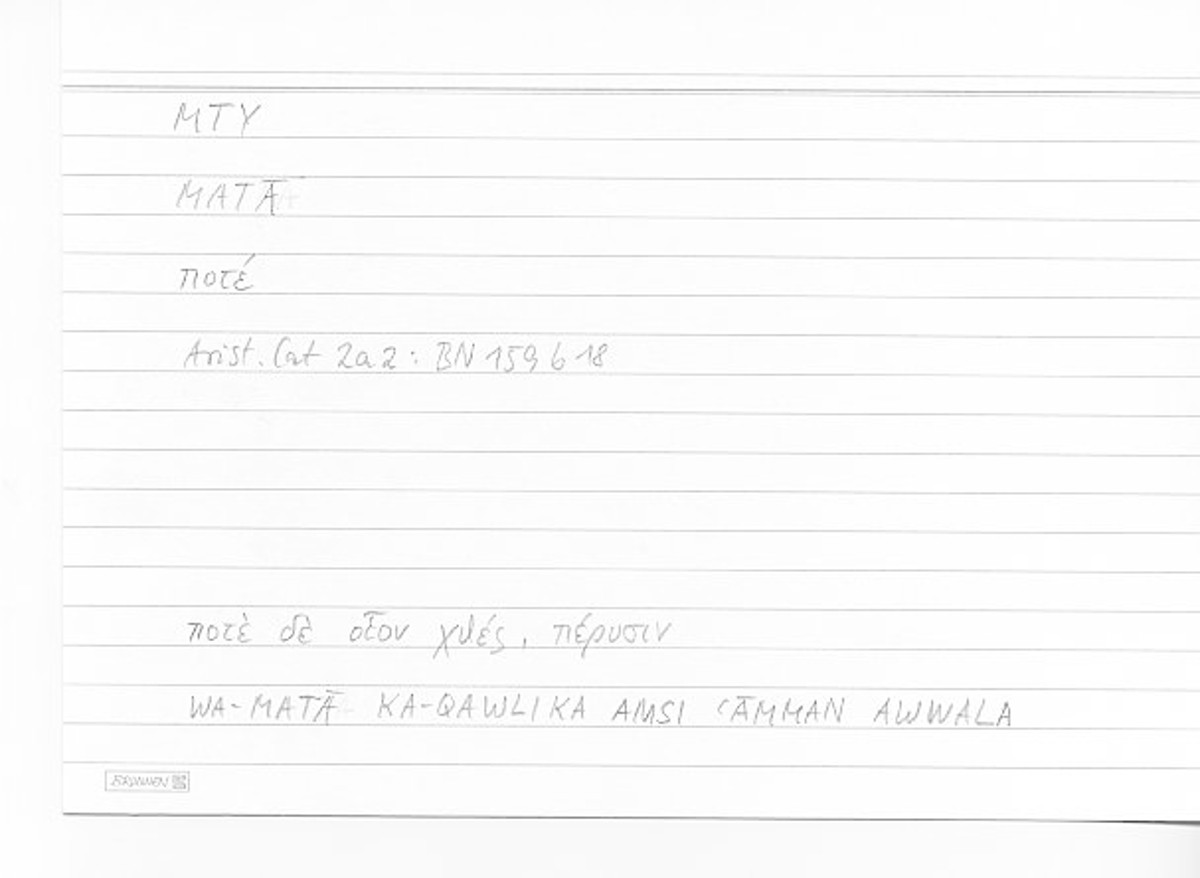 MTY
MATĀ
ποτέ
Arist. Cat 2a2: BN 159b18
ποτὲ δὲ οἷον χθές, πέρυσιν
WA-MATĀ KA-QAWLIKA AMSI ʿĀMMAN AWWALA
BRUNNEN